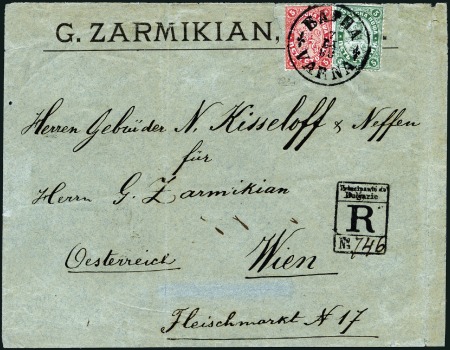 G. ZARMIKIAN,
ВАРНА
VARNA
Herren Gebrüder N. Kisseloff & Neffen
für
Herrn G. Zarmikian
Principauté de
Bulgarie
R
No 746
Oesterreich
Wien
Fleischmarkt N 17